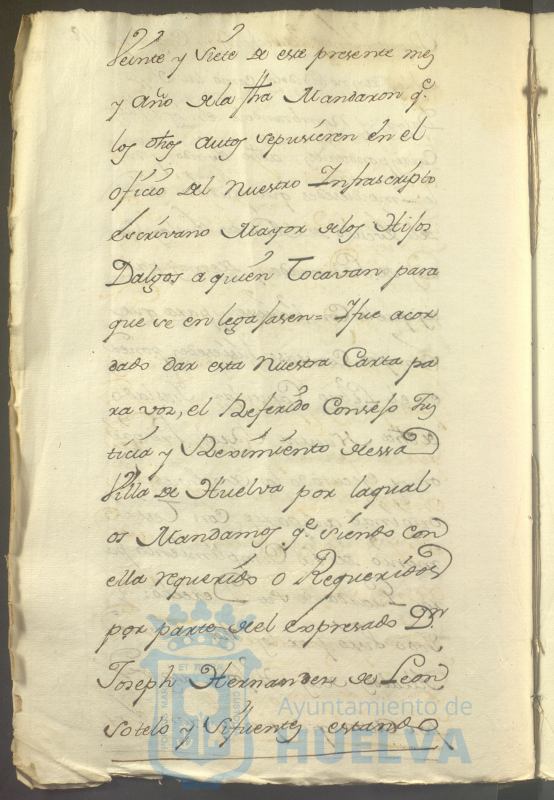 Veinte y Siete de este presente mes
y año de la fha Mandaron q.e
los dhos autos sepusieren en el
oficio del Nuestro Infrascripto
escrivano Mayor delos Hijos
Dalgos a quien Tocavan para
que se en legajasen = Ifue acor
dado dar esta Nuestra Carta pa
ra vos, el Referido Consejo Jus
ticia y Reximiento dessa
Villa de Huelva por laqual
os Mandamos q.e siendo con
ella requerido o Requeridos
por parte del expresado D.n
Joseph Hernandez de Leon
Sotelo y Sifuentes estando
Ayuntamiento de
HUELVA